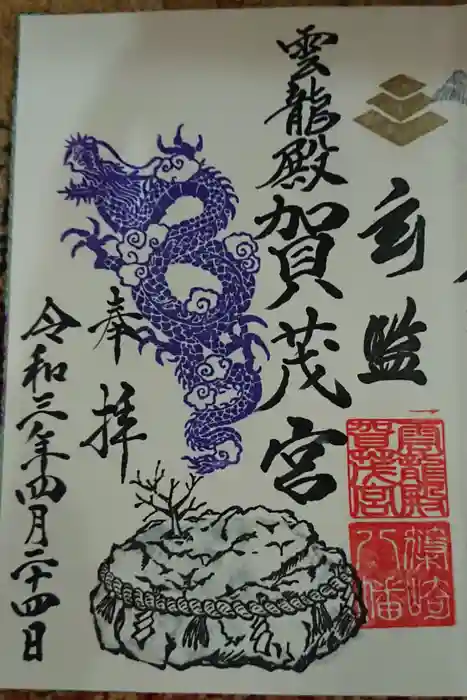 玄監
雲龍殿賀茂宮
奉拝
令和三年四月二十四日
雲龍殿
賀茂宮
篠崎
八幡